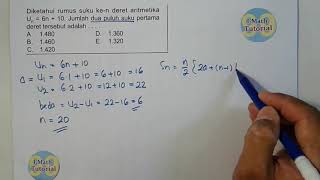 Diketahui rumus suku ke-n deret aritmetika
Uₙ = 6n + 10. Jumlah dua puluh suku pertama
deret tersebut adalah ....
A 1.480 D. 1.360
B. 1.460 E. 1.320
C. 1.420
iMath
Tutorial
Un = 6n + 10
a = U₁ = 6·1 + 10 = 6 + 10 = 16
U₂ = 6·2 + 10 = 12 + 10 = 22
beda = U₂ - U₁ = 22 - 16 = 6
n = 20
Sn = n/2 {2a + (n-1)
iMath
Tutorial
iMath
Tutorial